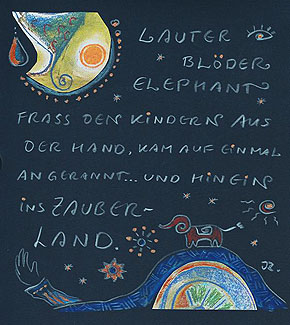 LAUTER
BLÖDER
ELEPHANT
FRASS DEN KINDERN AUS
DER HAND, KAM AUF EINMAL
ANGERANNT... UND HINEIN
INS ZAUBER-
LAND.
JZ.